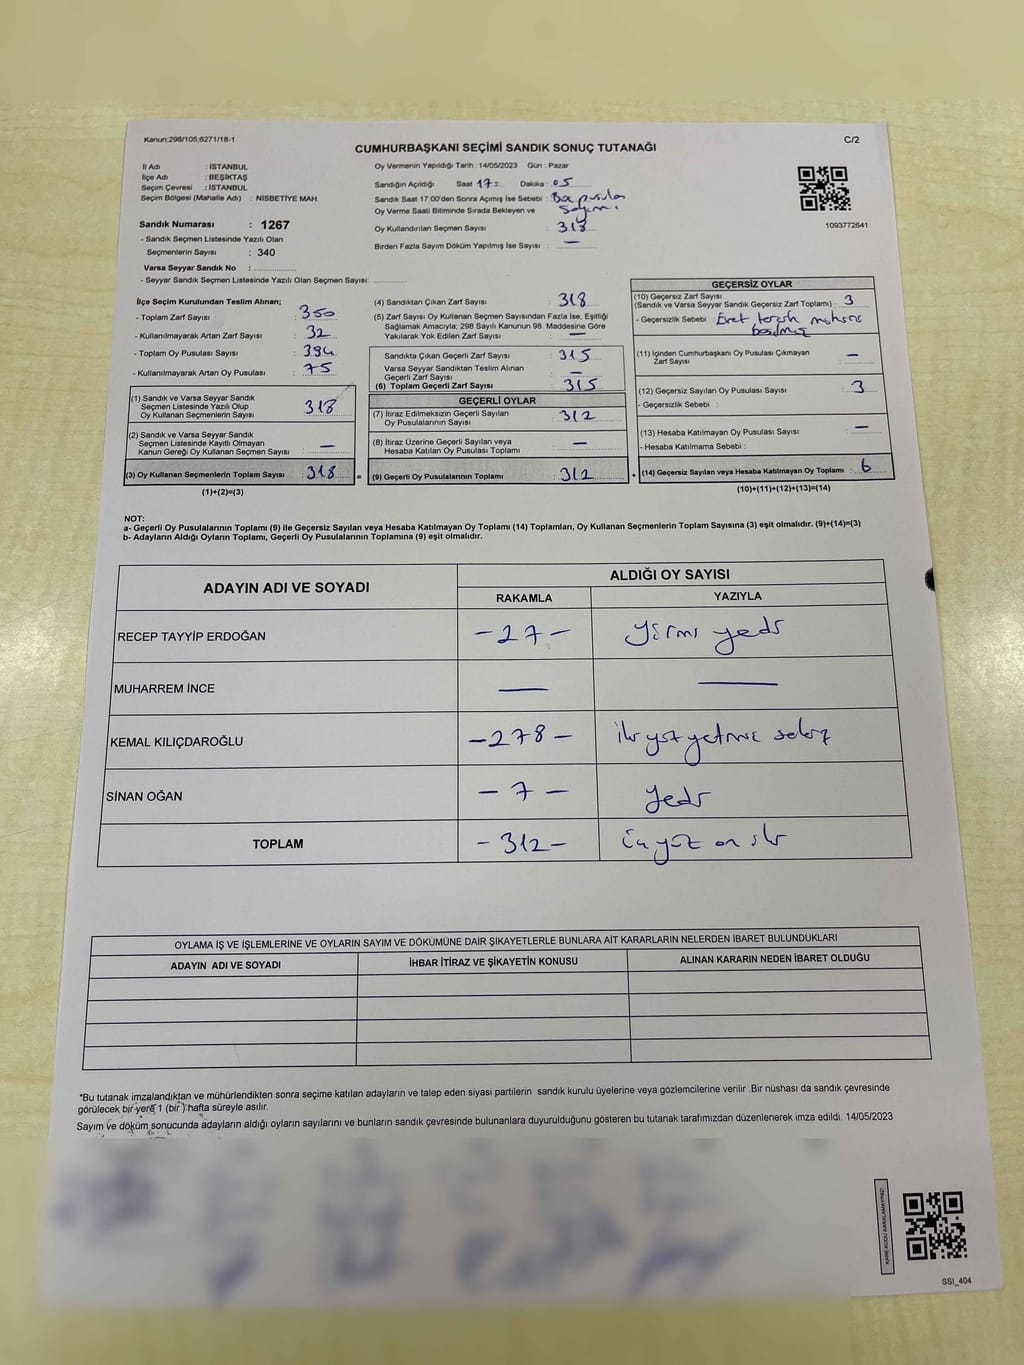 Kanun;298/105;6271/18-1
C/2
CUMHURBAŞKANI SEÇİMİ SANDIK SONUÇ TUTANAĞI
İl Adı : İSTANBUL
İlçe Adı : BEŞİKTAŞ
Seçim Çevresi : İSTANBUL
Seçim Bölgesi (Mahalle Adı) : NİSBETİYE MAH.
Sandık Numarası : 1267
- Sandık Seçmen Listesinde Yazılı Olan
Seçmenlerin Sayısı : 340
Varsa Seyyar Sandık No :
- Seyyar Sandık Seçmen Listesinde Yazılı Olan Seçmen Sayısı:
Oy Vermenin Yapıldığı Tarih : 14/05/2023 Gün : Pazar
Sandığın Açıldığı Saat 17 Dakika : 05
Sandık Saat 17:00'den Sonra Açımış İse Sebebi : Boş pusulan
Oy Verme Saati Bitiminde Sırada Bekleyen ve sayımı
Oy Kullandırılan Seçmen Sayısı : 318
Birden Fazla Sayım Döküm Yapılmış İse Sayısı : —
1093772641
İlçe Seçim Kurulundan Teslim Alınan;
- Toplam Zarf Sayısı : 350
- Kullanılmayarak Artan Zarf Sayısı : 32
- Toplam Oy Pusulası Sayısı : 394
- Kullanılmayarak Artan Oy Pusulası : 75
(1) Sandık ve Varsa Seyyar Sandık
Seçmen Listesinde Yazılı Olup
Oy Kullanan Seçmenlerin Sayısı : 318
(2) Sandık ve Varsa Seyyar Sandık
Seçmen Listesinde Kayıtlı Olmayan
Kanun Gereği Oy Kullanan Seçmen Sayısı : —
(3) Oy Kullanan Seçmenlerin Toplam Sayısı : 318 =
(1)+(2)=(3)
(4) Sandıktan Çıkan Zarf Sayısı : 318
(5) Zarf Sayısı Oy Kullanan Seçmen Sayısından Fazla İse, Eşitliği
Sağlamak Amacıyla; 298 Sayılı Kanunun 98. Maddesine Göre
Yakılarak Yok Edilen Zarf Sayısı : —
Sandıkta Çıkan Geçerli Zarf Sayısı : 315
Varsa Seyyar Sandıktan Teslim Alınan
Geçerli Zarf Sayısı : —
(6) Toplam Geçerli Zarf Sayısı : 315
GEÇERLİ OYLAR
(7) İtiraz Edilmeksizin Geçerli Sayılan
Oy Pusulalarının Sayısı : 312
(8) İtiraz Üzerine Geçerli Sayılan veya
Hesaba Katılan Oy Pusulası Toplamı : —
(9) Geçerli Oy Pusulalarının Toplamı : 312 +
GEÇERSİZ OYLAR
(10) Geçersiz Zarf Sayısı
(Sandık ve Varsa Seyyar Sandık Geçersiz Zarf Toplamı) : 3
- Geçersizlik Sebebi : Evet tercih mührü
basılmış
(11) İçinden Cumhurbaşkanı Oy Pusulası Çıkmayan
Zarf Sayısı : —
(12) Geçersiz Sayılan Oy Pusulası Sayısı : 3
- Geçersizlik Sebebi :
(13) Hesaba Katılmayan Oy Pusulası Sayısı : —
- Hesaba Katılmama Sebebi :
(14) Geçersiz Sayılan veya Hesaba Katılmayan Oy Toplamı : 6
(10)+(11)+(12)+(13)=(14)
NOT:
a- Geçerli Oy Pusulalarının Toplamı (9) ile Geçersiz Sayılan veya Hesaba Katılmayan Oy Toplamı (14) Toplamları, Oy Kullanan Seçmenlerin Toplam Sayısına (3) eşit olmalıdır. (9)+(14)=(3)
b- Adayların Aldığı Oyların Toplamı, Geçerli Oy Pusulalarının Toplamına (9) eşit olmalıdır.
ADAYIN ADI VE SOYADI
ALDIĞI OY SAYISI
RAKAMLA YAZIYLA
RECEP TAYYİP ERDOĞAN -27- Yirmi yedi
MUHARREM İNCE — —
KEMAL KILIÇDAROĞLU -278- iki yüz yetmiş sekiz
SİNAN OĞAN -7- Yedi
TOPLAM -312- üç yüz on iki
OYLAMA İŞ VE İŞLEMLERİNE VE OYLARIN SAYIM VE DÖKÜMÜNE DAİR ŞİKAYETLERLE BUNLARA AİT KARARLARIN NELERDEN İBARET BULUNDUKLARI
ADAYIN ADI VE SOYADI İHBAR İTİRAZ VE ŞİKAYETİN KONUSU ALINAN KARARIN NEDEN İBARET OLDUĞU
*Bu tutanak imzalandıktan ve mühürlendikten sonra seçime katılan adayların ve talep eden siyasi partilerin sandık kurulu üyelerine veya gözlemcilerine verilir .Bir nüshası da sandık çevresinde
görülecek bir yere 1 (bir ) hafta süreyle asılır.
Sayım ve döküm sonucunda adayların aldığı oyların sayılarını ve bunların sandık çevresinde bulunanlara duyurulduğunu gösteren bu tutanak tarafımızdan düzenlenerek imza edildi. 14/05/2023
KARE KODU KARALAMAYINIZ!
SSI_404